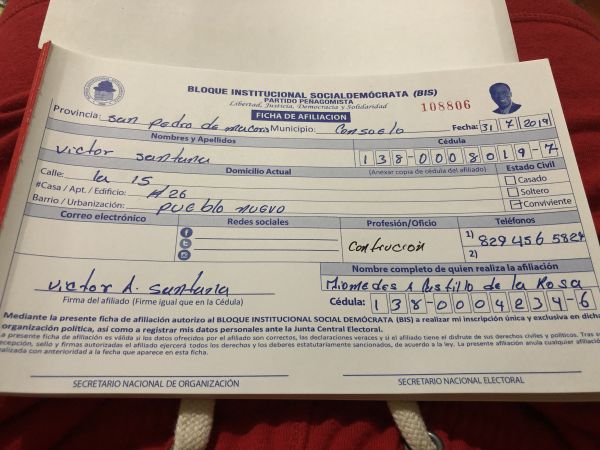 BLOQUE INSTITUCIONAL SOCIALDEMÓCRATA (BIS)
PARTIDO PENAGOMISTA
Libertad, Justicia, Democracia y Solidaridad
108806
FICHA DE AFILIACION
Provincia: San Pedro de Macoris Municipio: Consuelo Fecha: 31 7 2019
Nombres y Apellidos Cédula
Victor Santana 138-0008019-7
Domicilio Actual (Anexar copia de cédula del afiliado)
Estado Civil
Calle: La 15
Casado
#Casa / Apt. / Edificio: #26
Soltero
Barrio / Urbanización: Pueblo Nuevo
Conviviente
Correo electrónico Redes sociales Profesión/Oficio Teléfonos
Contrucion 1) 829 456 5824
2)
Nombre completo de quien realiza la afiliación
Victor A. Santana Miomedes A Castillo de la Rosa
Firma del afiliado (Firme igual que en la Cédula) Cédula: 138-0004234-6
Mediante la presente ficha de afiliación autorizo al BLOQUE INSTITUCIONAL SOCIAL DEMÓCRATA (BIS) a realizar mi inscripción única y exclusiva en dicha
organización política, así como a registrar mis datos personales ante la Junta Central Electoral.
La presente ficha de afiliación es válida si los datos ofrecidos por el afiliado son correctos, las declaraciones veraces y si el afiliado tiene el disfrute de sus derechos civiles y políticos. Tras su
recepción, sello y firmas autorizadas el afiliado ejercerá todos los derechos y los deberes estatutariamente sancionados, de acuerdo a la ley. La presente afiliación anula cualquier afiliación
realizada con anterioridad a la fecha que aparece en esta ficha.
SECRETARIO NACIONAL DE ORGANIZACIÓN SECRETARIO NACIONAL ELECTORAL